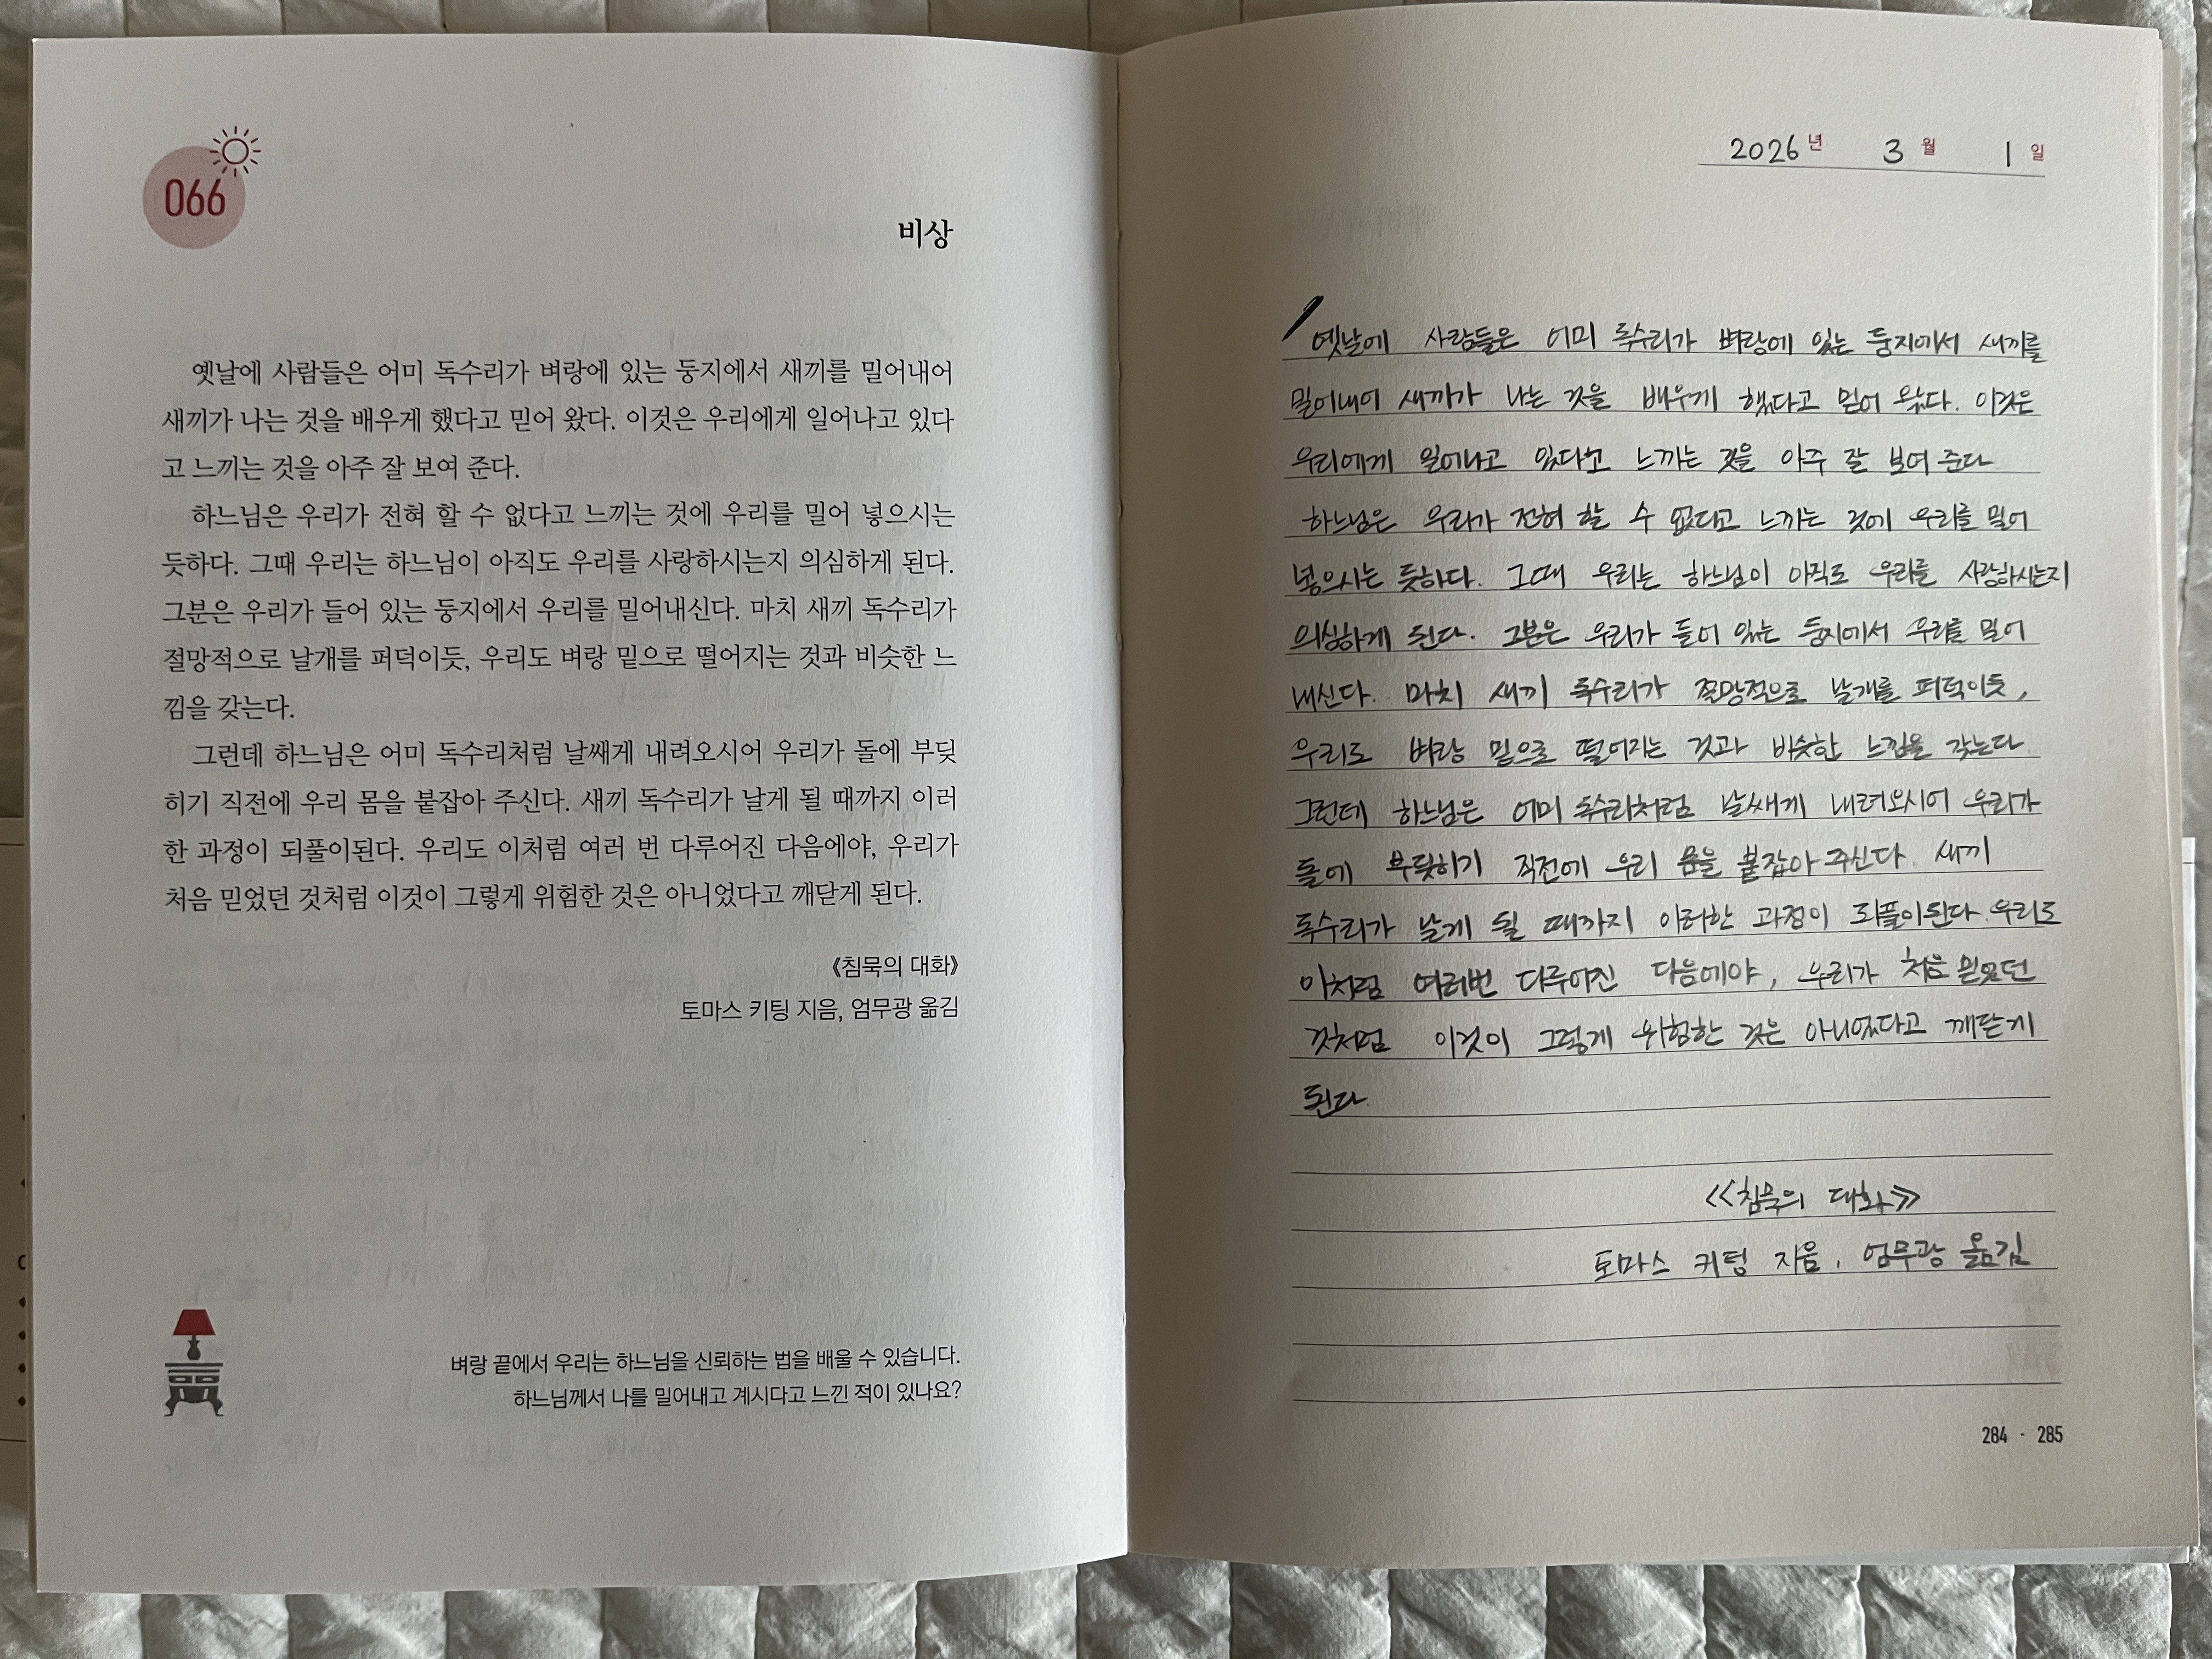 066
비상
옛날에 사람들은 어미 독수리가 벼랑에 있는 둥지에서 새끼를 밀어내어
새끼가 나는 것을 배우게 했다고 믿어 왔다. 이것은 우리에게 일어나고 있다
고 느끼는 것을 아주 잘 보여 준다.
하느님은 우리가 전혀 할 수 없다고 느끼는 것에 우리를 밀어 넣으시는
듯하다. 그때 우리는 하느님이 아직도 우리를 사랑하시는지 의심하게 된다.
그분은 우리가 들어 있는 둥지에서 우리를 밀어내신다. 마치 새끼 독수리가
절망적으로 날개를 퍼덕이듯, 우리도 벼랑 밑으로 떨어지는 것과 비슷한 느
낌을 갖는다.
그런데 하느님은 어미 독수리처럼 날쌔게 내려오시어 우리가 돌에 부딪
히기 직전에 우리 몸을 붙잡아 주신다. 새끼 독수리가 날게 될 때까지 이러
한 과정이 되풀이된다. 우리도 이처럼 여러 번 다루어진 다음에야, 우리가
처음 믿었던 것처럼 이것이 그렇게 위험한 것은 아니었다고 깨닫게 된다.
《침묵의 대화》
토마스 키팅 지음, 엄무광 옮김
벼랑 끝에서 우리는 하느님을 신뢰하는 법을 배울 수 있습니다.
하느님께서 나를 밀어내고 계시다고 느낀 적이 있나요?
2026년 3월 1일
옛날에 사람들은 어미 독수리가 벼랑에 있는 둥지에서 새끼를
밀어내어 새끼가 나는 것을 배우게 했다고 믿어 왔다. 이것은
우리에게 일어나고 있다고 느끼는 것을 아주 잘 보여 준다
하느님은 우리가 전혀 할 수 없다고 느끼는 것에 우리를 밀어
넣으시는 듯하다. 그때 우리는 하느님이 아직도 우리를 사랑하시는지
의심하게 된다. 그분은 우리가 들어 있는 둥지에서 우리를 밀어
내신다. 마치 새끼 독수리가 절망적으로 날개를 퍼덕이듯,
우리도 벼랑 밑으로 떨어지는 것과 비슷한 느낌을 갖는다
그런데 하느님은 어미 독수리처럼 날쌔게 내려오시어 우리가
돌에 부딪히기 직전에 우리 몸을 붙잡아 주신다. 새끼
독수리가 날게 될 때까지 이러한 과정이 되풀이된다. 우리도
이처럼 여러번 다루어진 다음에야, 우리가 처음 믿었던
것처럼 이것이 그렇게 위험한 것은 아니었다고 깨닫게
된다.
<<침묵의 대화>>
토마스 키팅 지음, 엄무광 옮김
284 · 285